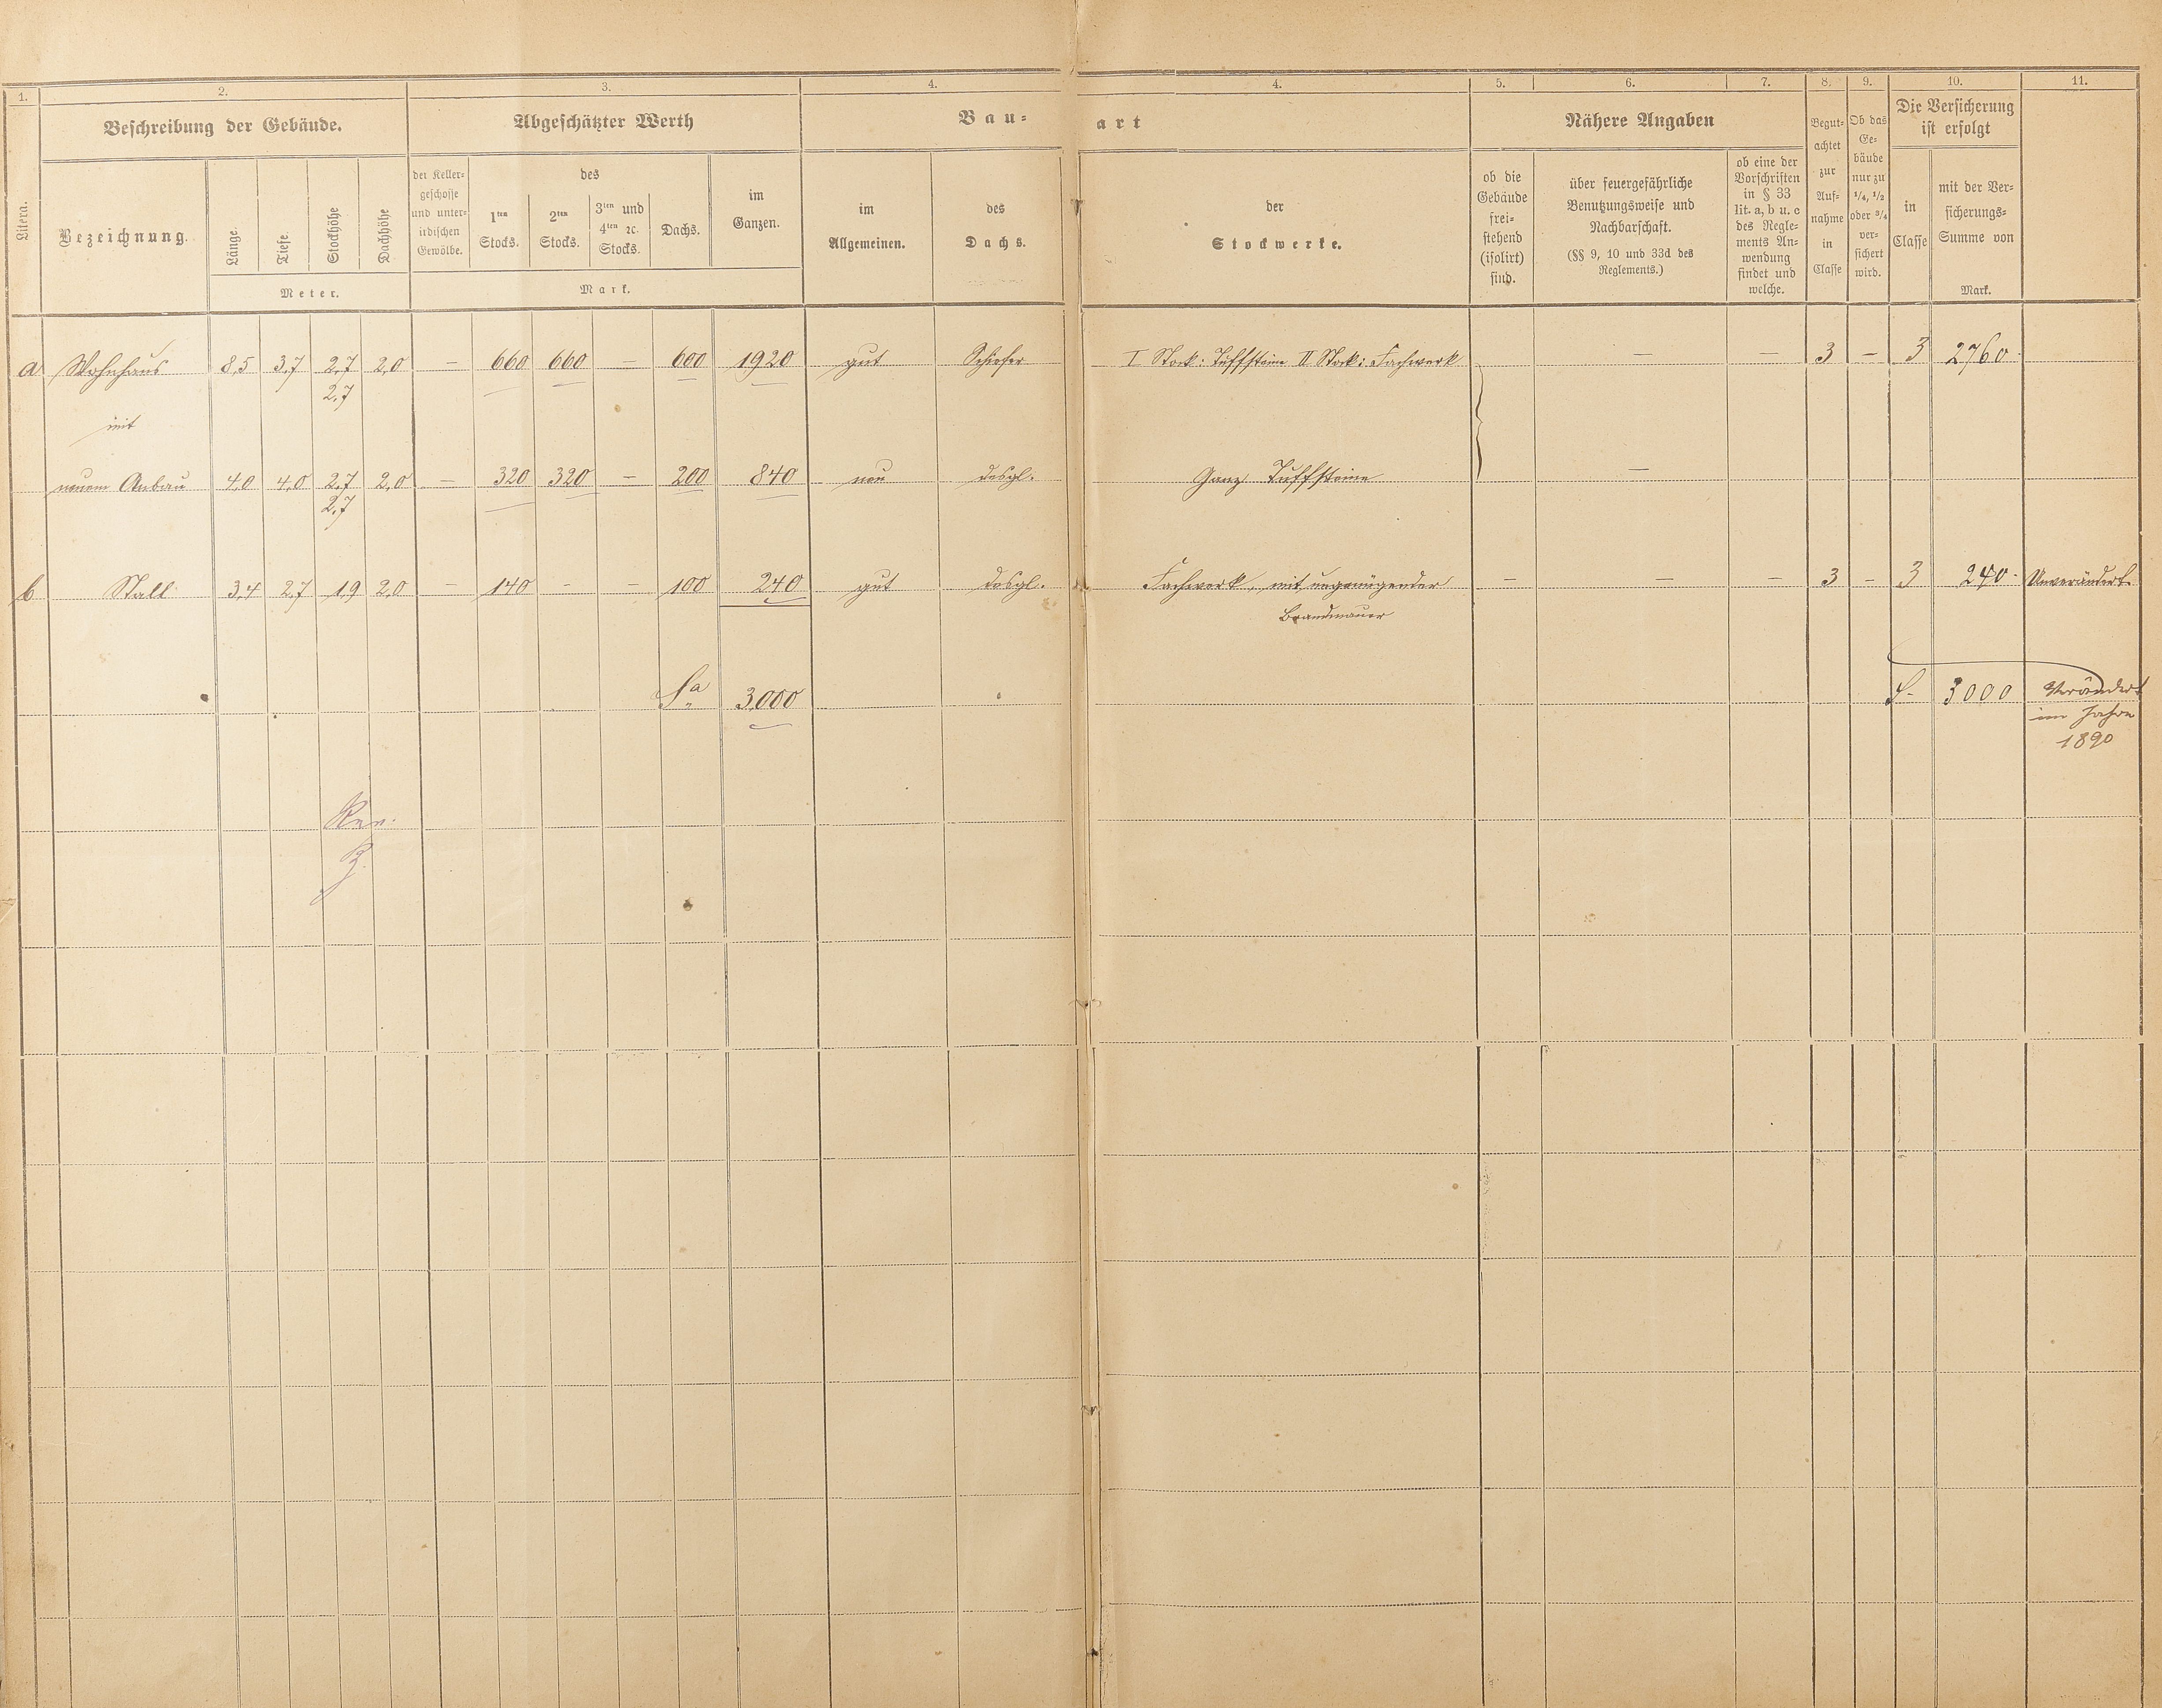 1. 2. 3. 4. 4. 5. 6. 7. 8. 9. 10. 11.
Litera.
Beschreibung der Gebäude.
Abgeschätzter Werth
Bau-
art
Nähere Angaben
Begut-
achtet
zur
Auf-
nahme
in
Classe
Ob das
Ge-
bäude
nur zu
1/4, 1/2
oder 3/4
ver-
sichert
wird.
Die Versicherung
ist erfolgt
Bezeichnung.
Länge.
Tiefe.
Stockhöhe
Dachhöhe
Meter.
der Keller-
geschosse
und unter-
irdischen
Gewölbe.
des
1ten
Stocks.
2ten
Stocks.
3ten und
4ten ꝛc.
Stocks.
Dachs.
im
Ganzen.
Mark.
im
Allgemeinen.
des
Dachs.
der
Stockwerke.
ob die
Gebäude
frei-
stehend
(isolirt)
sind.
über feuergefährliche
Benutzungsweise und
Nachbarschaft.
(§§ 9, 10 und 33d des
Reglements.)
ob eine der
Vorschriften
in § 33
lit. a, b u. c
des Regle-
ments An-
wendung
findet und
welche.
in
Classe
mit der Ver-
sicherungs-
Summe von
Mark.
a Wohnhaus 8,5 3,7 2,7 2,0 — 660 660 — 600 1920 gut Schiefer I Stock: Tuffsteine II Stock: Fachwerk — — 3 — 3 2760.
2,7
mit
neuem Anbau 4,0 4,0 2,7 2,0 — 320 320 — 200 840 neu desgl. Ganz Tuffsteine —
2,7
b Stall 3,4 2,7 1,9 2,0 — 140 - — 100 240 gut desgl. Fachwerk, mit ungenügender — — — 3 — 3 240. Unverändert.
Brandmauer
Sa 3,000 S. 3000 Verändert
im Jahre
1890
Rev.